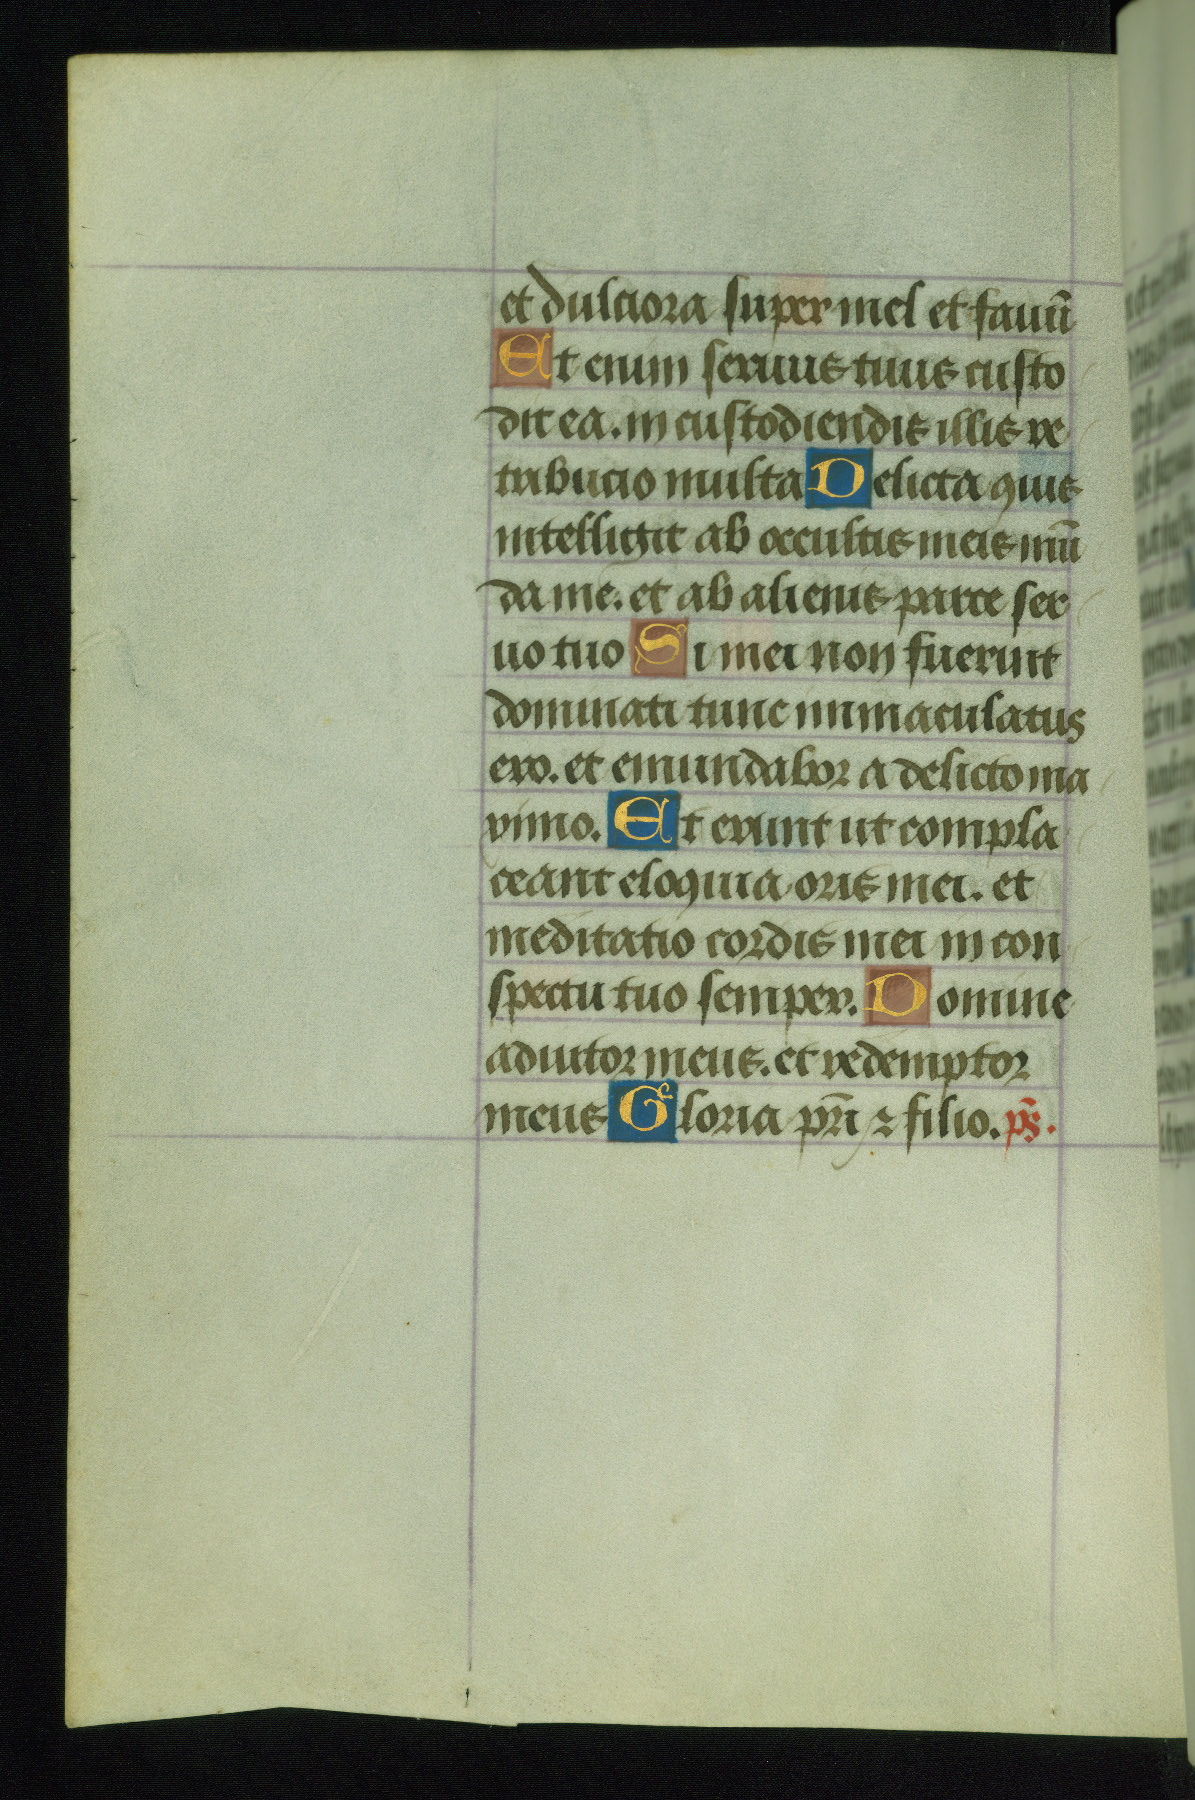 et dulciora super mel et fauū
Et enim seruus tuus custo
dit ea. in custodiendis illis re
tribucio multa Delicta quis
intelligit ab occultis meis mū
da me. et ab alienis parce ser
uo tuo Si mei non fuerint
dominati tunc inmaculatus
ero. et emundabor a delicto ma
ximo. Et erunt ut compla
ceant eloquia oris mei. et
meditatio cordis mei in con
spectu tuo semper. Domine
adiutor meus. et redemptor
meus Gloria pr̄i ⁊ filio. ps̄.